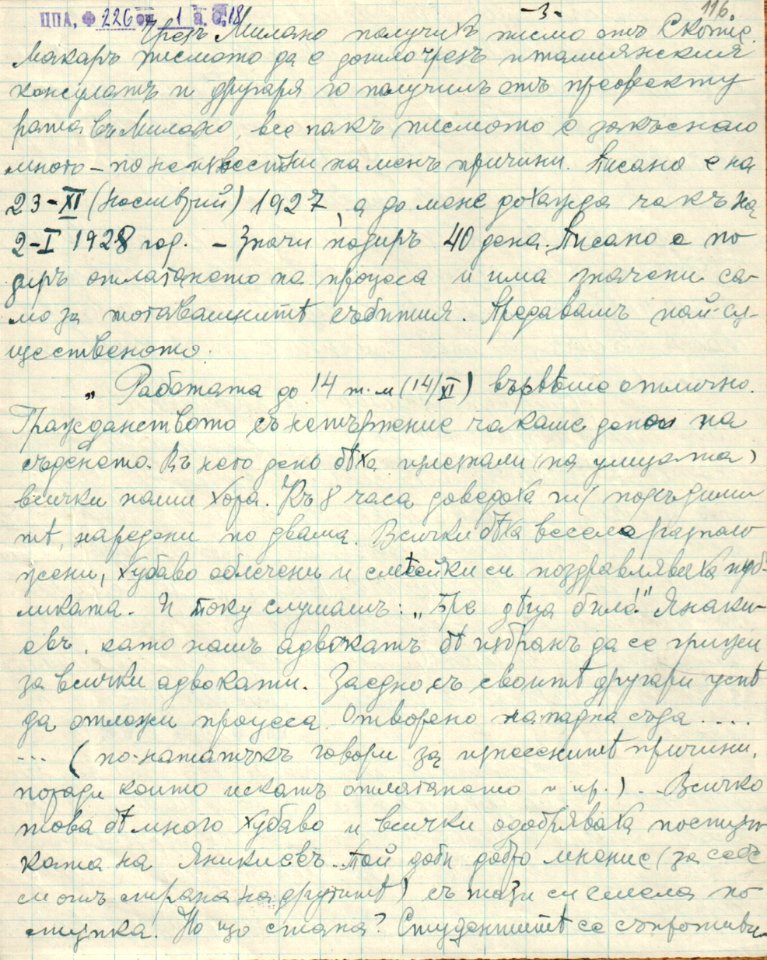 ЦПА, Ф 226 оп 1 а.е. 18
-3-
116.
Чрезъ Милано получихъ писмо отъ Скопие.
Макаръ писмото да е дошло чрезъ италиянския
консулатъ и другаря го получилъ отъ префекту
рата въ Милано, все пакъ писмото е закъсняло
много – по неизвестни на менъ причини. Писано е на
23-XI (Ноемврий) 1927, а до мене дохажда чакъ на
2-I 1928 год. – Значи подиръ 40 дена. Писано е по-
диръ отлагането на процеса и има значени са-
мо за тогавашните събития. Предавамъ най-съ-
щественото.
„ Работата до 14 т.м (14/XI) вървѣше отлично.
Гражданството съ нетърпение чакаше деня на
съденето. Въ него день бѣха излезнали (на улицата)
всички наши хора. Къ 8 часа доведоха ги (подсъдими
тѣ, наредени по двама. Всички бѣха весело разполо
жени, хубаво облечени и смѣейки си поздравляваха пуб-
ликата. И току слушамъ: „Бра дѣца било!" Янаки-
евъ, като нашъ адвокатъ бѣ избранъ да се грижи
за всички адвокати. Заедно съ своитѣ другари успѣ
да отложи процеса. Отворено нападна съда ....
... (по-нататъкъ говори за изнесенитѣ причини,
поради които искатъ отлагането и пр.). Всичко
това бѣ много хубаво и всички одобряваха постъп-
ката на Яникиевъ. Той доби добро мнение (за себе
си отъ страна на другитѣ) съ тази си смела по
стъпка. Но що стана? Студентитѣ се съпротиви